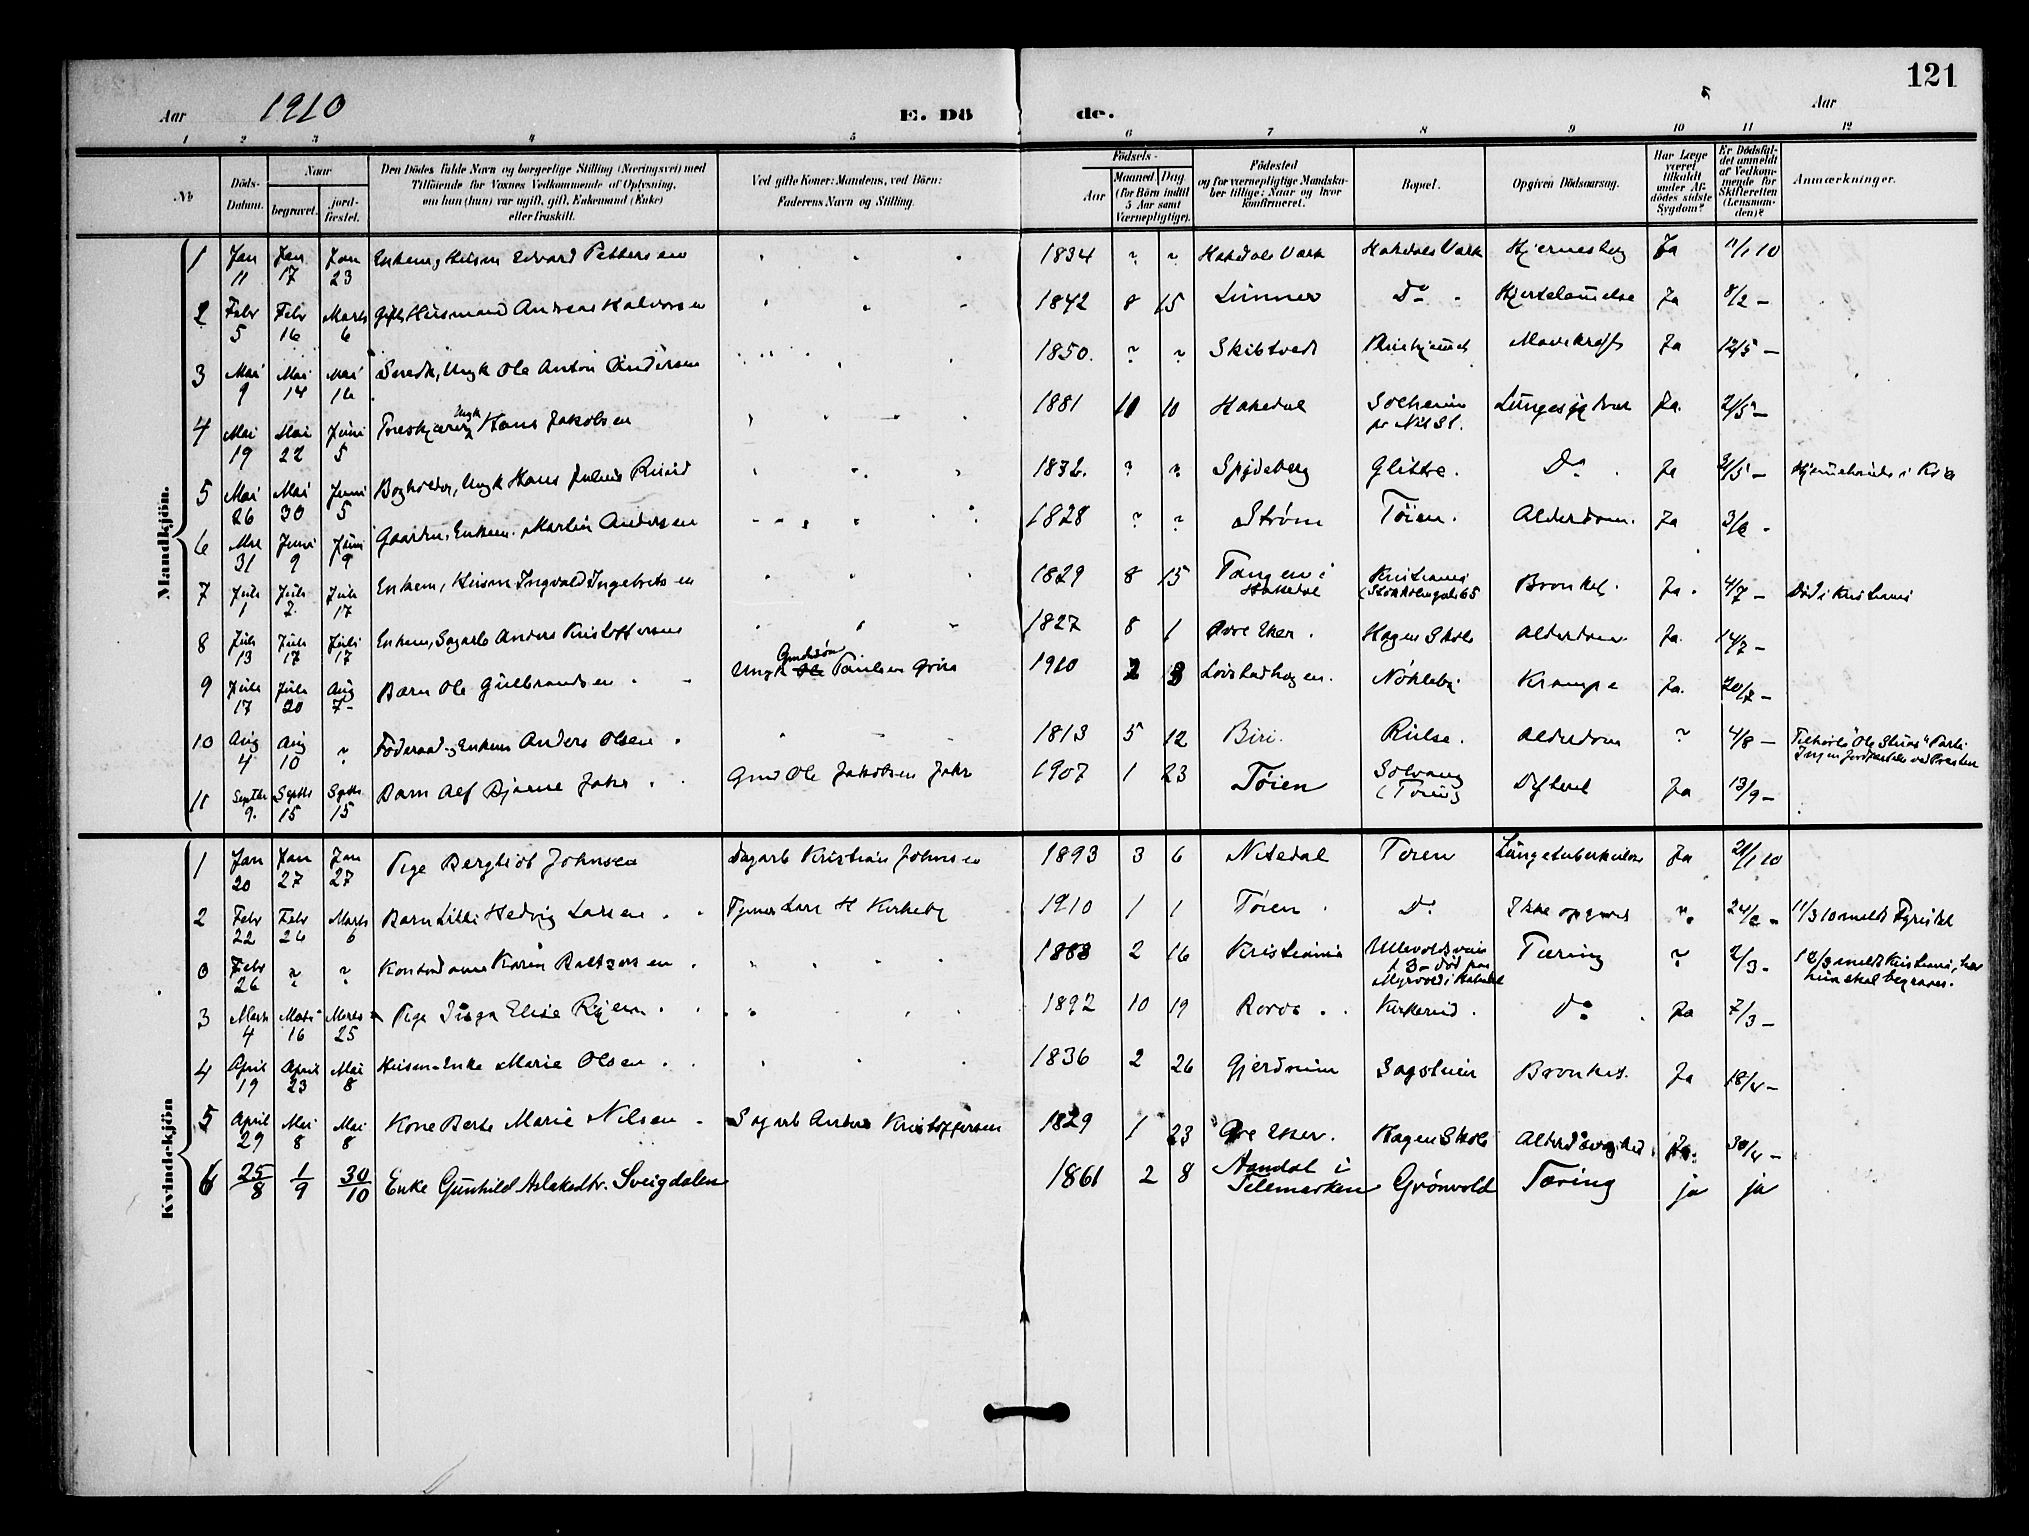 121
Aar 1910 E. Dö de. Aar
1 2 3 4 5 6 7 8 9 10 11 12
No
Döds-Datum.
Naar
begravet.
jord-fæstet.
Den Dödes fulde Navn og borgerlige Stilling (Næringsvei) med
Tilföiende for Voxnes Vedkommende af Oplysning,
om hun (hun) var ugift, gift, Enkemand (Enke)
eller fraskilt.
Ved gifte Koner: Mandens, ved Börn:
Faderens Navn og Stilling.
Födsels-
Aar
Maaned Dag
(for Börn indtil
5 Aar samt
Værnepligtige).
Födested
og for værnepligtige Mandskaber tillige: Naar og hvor
konfirmeret.
Bopæl.
Opgiven Dödsaarsag.
Har Læge
været
tilkaldt
under Afdödes sidste
Sygdom?
Er Dödsfaldet anmeldt
af Vedkommende for
Skifteretten
(Lensmanden)?
Anmærkninger.
Mandkjön.
1 Jan 11 Jan 17 Jan 23 Enkem, Husm Edvard Pettersen 1834 ? ? Hakedals Værk Hakedals Værk Hjerneslag Ja 11/1 10
2 Febr 5 Febr 16 Marts 6 Gift Husmand Andreas Halvorsen 1842 8 15 Lunner Do Hjertelammelse Ja 8/2 —
3 Mai 9 Mai 14 Mai 16 Smedk, Ungk Ole Anton Andersen 1850. ? ? Skibtvedt Mavekræft Ja 12/5 —
4 Mai 19 Mai 22 Juni 5 Ungk Hans Jakobsen 1881 10 10 Hakedal Solheim pr Nit St. Ja. 21/5 —
5 Mai 26 Mai 30 Juni 5 Bogholder, Ungk Hans Julius Ruud 1832. ? ? Spydeberg Glitre. Do Ja 31/5 —
6 Mai 31 Juni 9 Juni 19 Gaardm, Enkem. Martin Andersen 1828 ? ? Strøm Tøien. Alderdom. Ja 3/6 -
7 Juli 1 Juli 2 Juli 17 Enkem, Husm Ingvald Ingebretsen 1829 8 15 Tangen i Hakedal Kristiania (Stokholmgate 65 Bronkit. Ja. 4/7 — Död i Kristiania
8 Juli 13 Juli 17 Juli 17 Enkem, Sagarb Anders Kristoffersen 1827 8 1 Øvre Eker. Hagen Skole Alderdom Ja. 14/7 —
9 Juli 17 Juli 20 Aug 7 Barn Ole Gulbrandsen Ungk Gmdssøn Paulsen Grini 1910 2 3 Løvstadhagen. Nökleby Krampe Ja. 20/7 —
10 Aug 4 Aug 10 ? Föderaad-, Enkem Anders Olsen 1813 5 12 Biri. Rulse. Alderdom ? 4/8 —
11 Septbr 9. Septbr 15 Septbr 15 Barn Alf Bjarne Jahr Gmd Ole Jakobsen Jahr 1907 1 23 Tøien Solvang (Töien) Difterit Ja 13/9 —
Kvindekjön
1 Jan 20 Jan 27 Jan 27 Pige Bergliot Johnsen Dagarb Kristian Johnsen 1893 3 6 Nitedal Toien Lungetuberkulose Ja 21/1 10
2 Febr 22 Febr 26 Marts 6 Barn Lilli Hedvig Larsen Lars H Kirkeby 1910 1 1 Tøien Do Ikke opgivet ? 24/2 - 11/3 10 meldt Fysikat
0 Febr 26 ? ? Kontordame Karen Baltzersen 1883 2 16 Kristiania Ullevoldsveien 13 - död paa Myrvold i Hakedal Tæring ? 2/3 - 12/3 meldt Kristiania, hvor hun skal begraves.
3 Marts 4 Marts 16 Marts 25 Pige Inga Elise 1892 10 19 Roros Kirkerud. Do Ja 7/3 —
4 April 19 April 23 Mai 8 Husm-Enke Marie Olsen 1836 2 26 Gjerdrum Sagstuen Bronkit. Ja 18/4 —
5 April 29 Mai 8 Mai 8 Kone Berte Marie Nilsen Sagarb Anders Kristoffersen 1829 1 23 Øvre Eker. Hagen Skole Ja. 30/4 —
6 25/8 1/9 30/10 Enke Gunhild Aslaksdtr. Sveigdalen 1861 2 8 Aamdal i Telemarken Grönvold Tæring ja ja